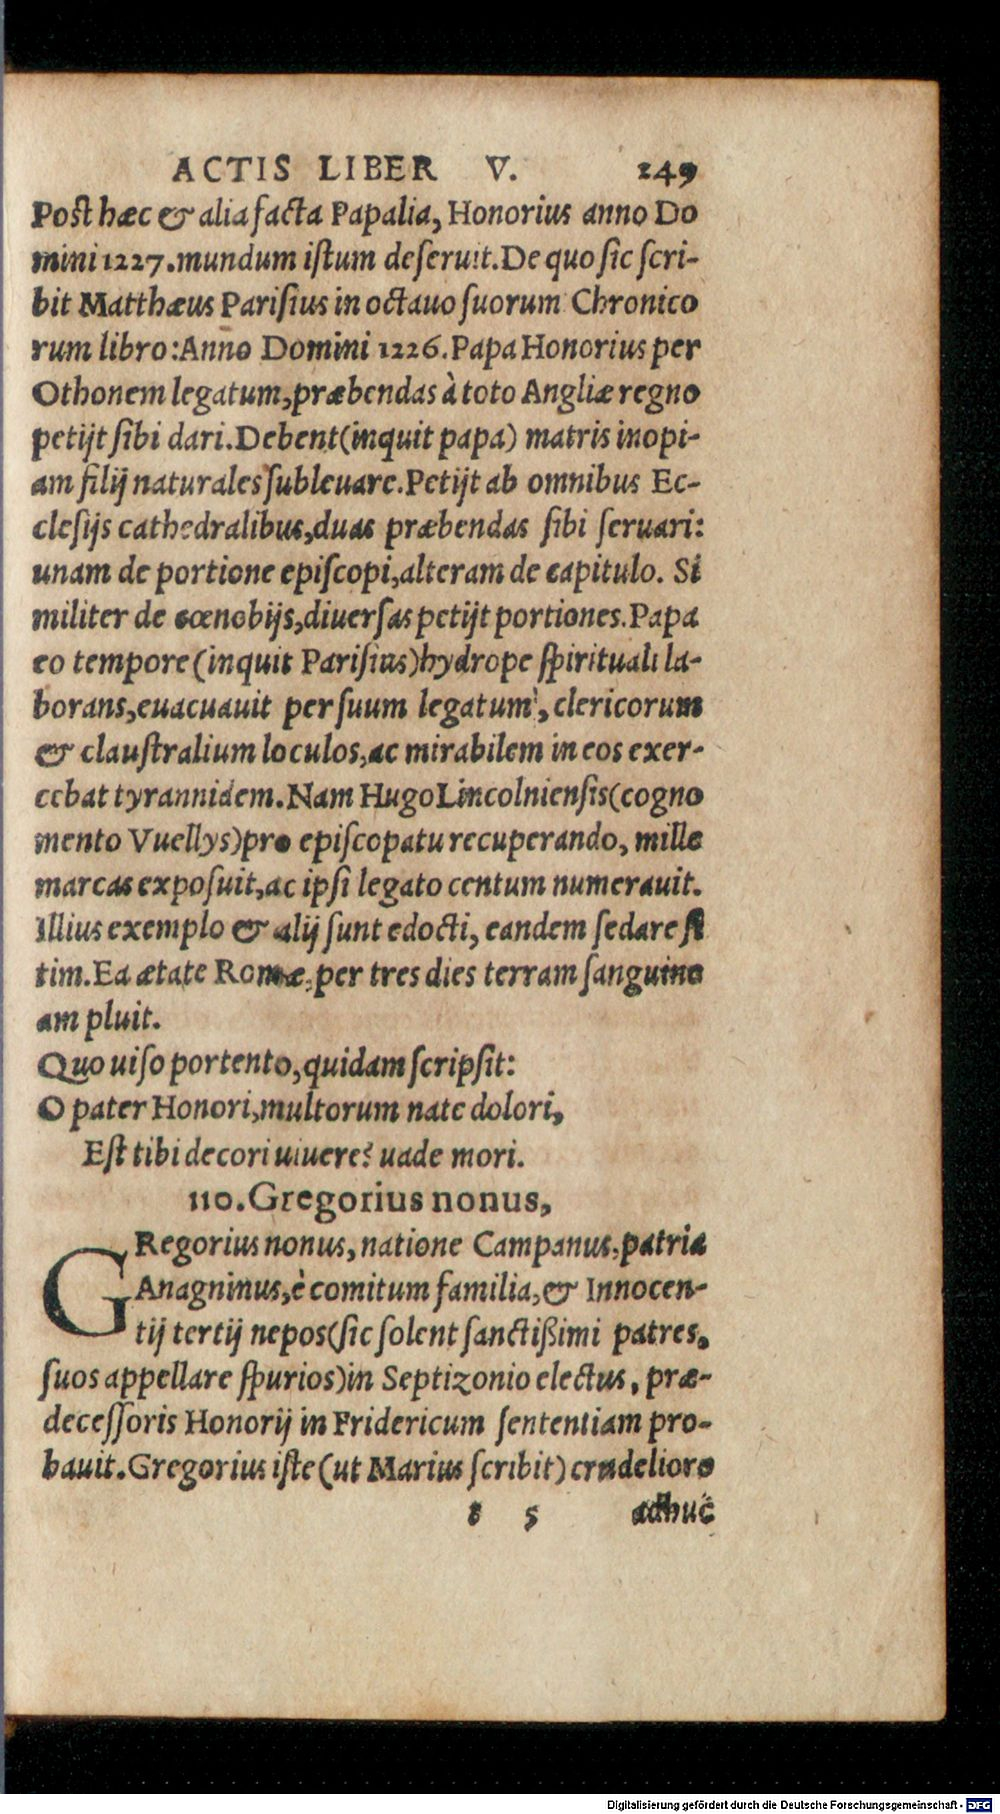 ACTIS LIBER V. 249
Post hæc & alia facta Papalia, Honorius anno Do
mini 1227. mundum iſtum deſeruit. De quo ſic ſcri-
bit Matthæus Pariſius in octauo ſuorum Chronico
rum libro: Anno Domini 1226. Papa Honorius per
Othonem legatum, præbendas à toto Angliæ regno
petijt ſibi dari. Debent (inquit papa) matris inopi-
am filij naturales ſubleuare. Petijt ab omnibus Ec-
cleſijs cathedralibus, duas præbendas ſibi ſeruari:
unam de portione epiſcopi, alteram de capitulo. Si
militer de cœnobijs, diuerſas petijt portiones. Papa
eo tempore (inquit Pariſius) hydrope ſpirituali la-
borans, euacuauit per ſuum legatum, clericorum
& clauſtralium loculos, ac mirabilem in eos exer-
cebat tyrannidem. Nam Hugo Lincolnienſis (cogno
mento Vuellys) pro epiſcopatu recuperando, mille
marcas expoſuit, ac ipſi legato centum numerauit.
Illius exemplo & alij ſunt edocti, eandem ſedare ſi
tim. Ea ætate Romæ, per tres dies terram ſanguine
am pluit.
Quo uiſo portento, quidam ſcripſit:
O pater Honori, multorum nate dolori,
Eſt tibi decori uiuere? uade mori.
110. Gregorius nonus,
GRegorius nonus, natione Campanus, patria
Anagninus, è comitum familia, & Innocen-
tij tertij nepos (ſic ſolent ſanctißimi patres,
ſuos appellare ſpurios) in Septizonio electus, præ-
deceſſoris Honorij in Fridericum ſententiam pro-
bauit. Gregorius iſte (ut Marius ſcribit) crudeliore
s 5 adhuc
Digitalisierung gefördert durch die Deutsche Forschungsgemeinschaft - DFG